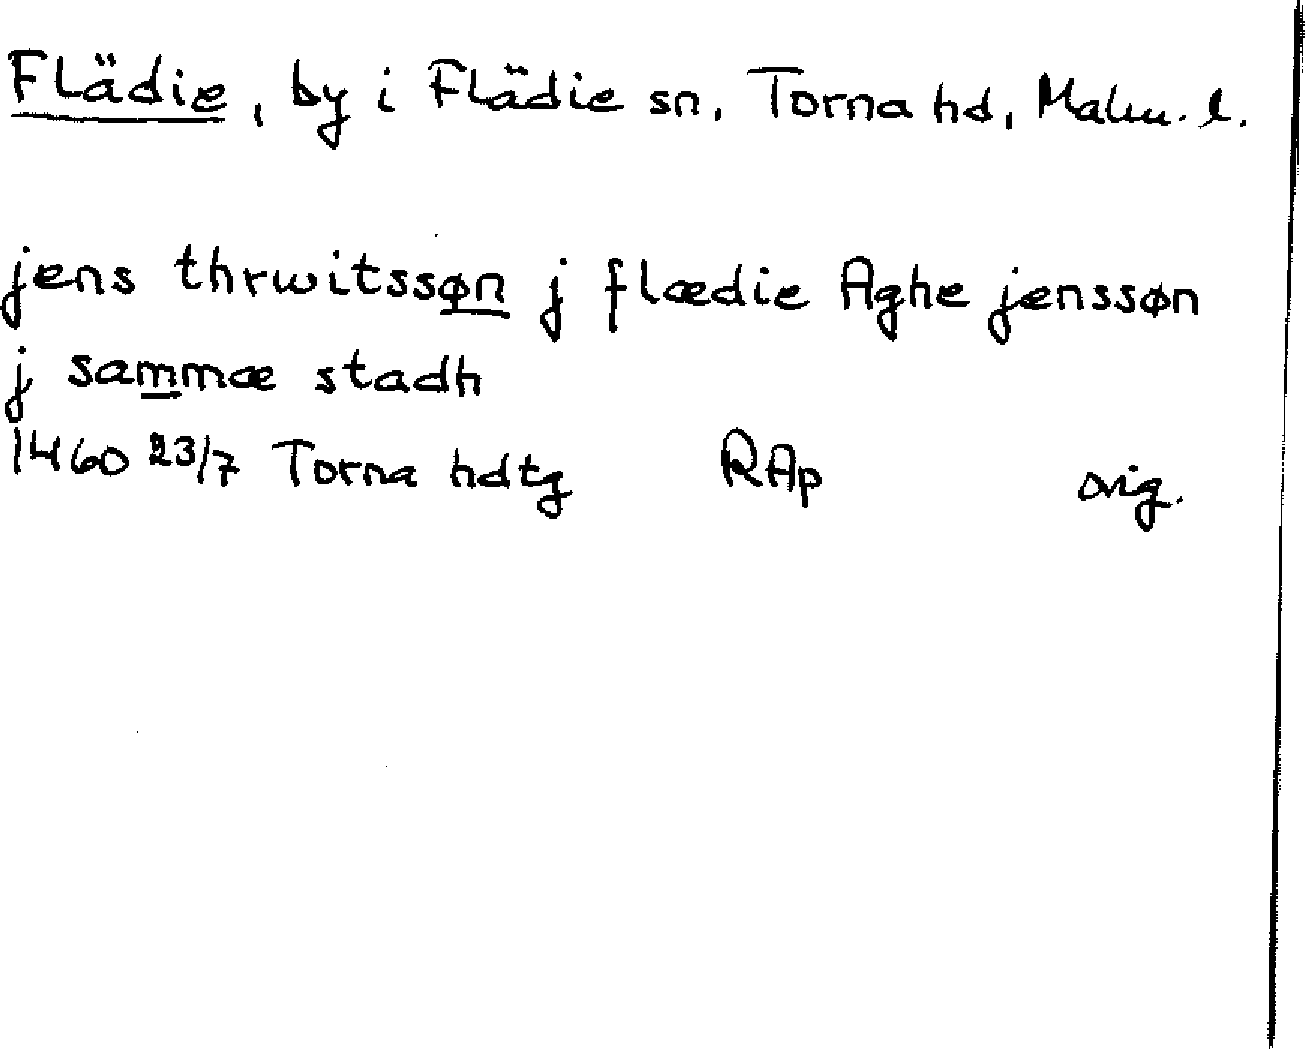 Flädie, by i Flädie sn, Torna hd, Malm. l.
jens thrwitssøn j flædie Aghe jenssøn
j sammæ stadh
1460 23/7 Torna hdtg RAp orig.